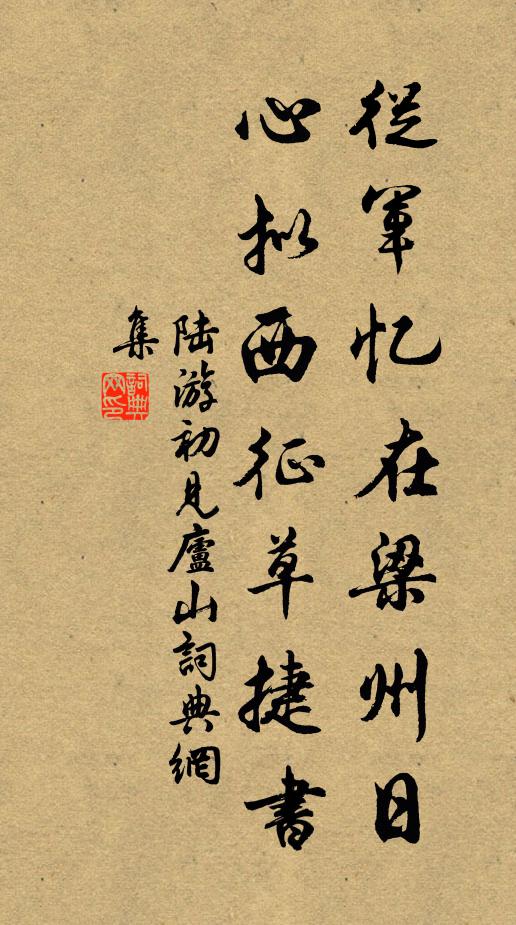 從軍忆在梁州日
心拟西征草捷書
陆游初見廬山詞典網
集
詞典网印